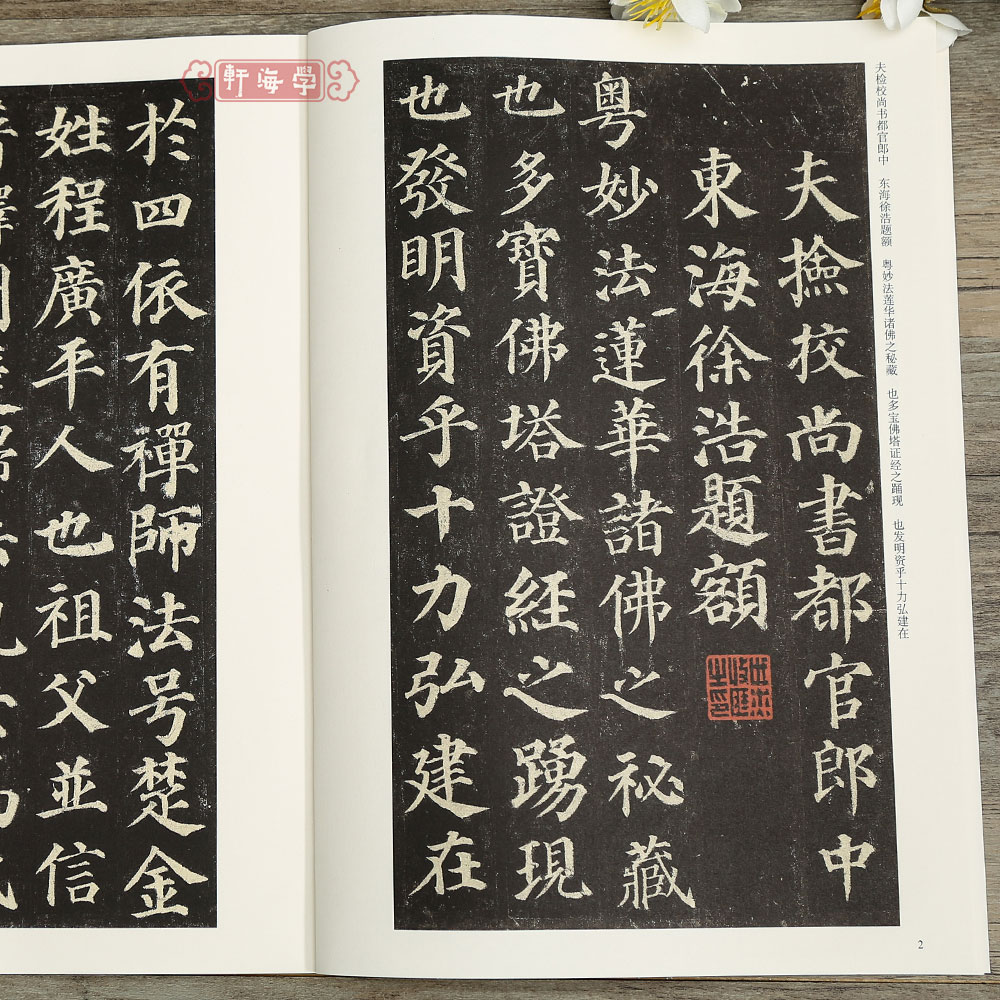 軒海学
夫撿挍尚書都官郎中
東海徐浩題額
粵妙法蓮華諸佛之祕藏
也多寶佛塔證經之踴現
也發明資乎十力弘建在
夫检校尚书都官郎中 东海徐浩题额 粤妙法莲华诸佛之秘藏 也多宝佛塔证经之踊现 也发明资乎十力弘建在
2
於四依有禪師法号楚金
姓程廣平人也祖父並信